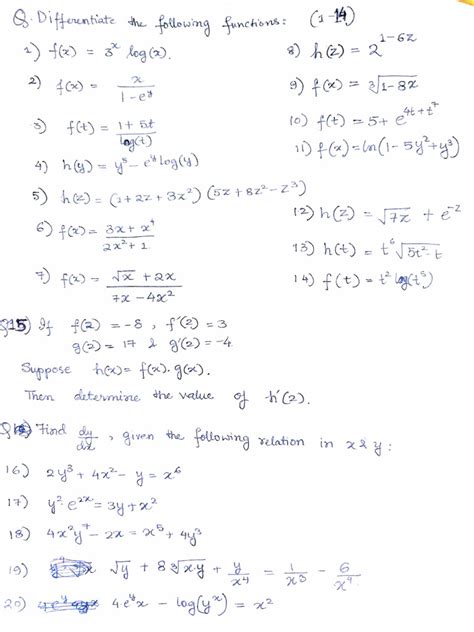 Q. Differentiate the following functions: (1-14)
1) f(x) = 3^x log(x).
2) f(x) = x / (1-e^y)
3) f(t) = (1+5t) / log(t)
4) h(y) = y^5 - e^y log(y)
5) h(z) = (1+2z+3z^2) (5z+8z^2-z^3)
6) f(x) = (3x+x^4) / (2x^2+1)
7) f(x) = (√x + 2x) / (7x-4x^2)
8) h(z) = 2^(1-6z)
9) f(x) = ∛(1-8x)
10) f(t) = 5+e^(4t+t^7)
11) f(x) = ln(1-5y^2+y^3)
12) h(z) = √7x + e^-z
13) h(t) = t^6 √(5t^2-t)
14) f(t) = t^2 log(t^5)
Q15) If f(2) = -8, f'(2) = 3
g(2) = 17 & g'(2) = -4
Suppose h(x) = f(x).g(x).
Then determine the value of h'(2).
Find dy/dx, given the following relation in x & y:
16) 2y^3 + 4x^2 - y = x^6
17) y^2 e^2x = 3y + x^2
18) 4x^2y^7 - 2x = x^5 + 4y^3
19) √y + 8∛x.y + y/x^4 = 1/x^3 - 6/x^4
20) 4e^y x - log(y^x) = x^2